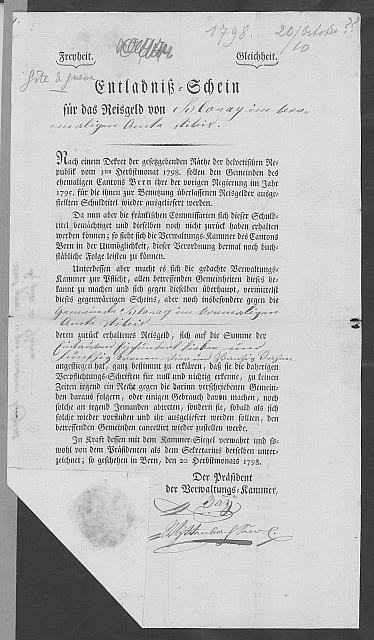 1798. 20/October
10
Freyheit. Gleichheit.
Entladniß-Schein
für das Reisgeld von Blonay im vor-
maligen Amte Vivis.
Nach einem Dekret der gesetzgebenden Räthe der helvetischen Re-
publik vom 3ten Herbstmonat 1798. sollen den Gemeinden des
ehemaligen Cantons Bern ihre der vorigen Regierung im Jahr
1795. für die ihnen zur Benutzung überlassenen Reisgelder ausge-
stellten Schuldtitel wieder ausgeliefert werden.
Da nun aber die fränkischen Commissarien sich dieser Schuld-
titel bemächtiget und dieselben noch nicht zurück haben erhalten
werden können; so sieht sich die Verwaltungs-Kammer des Cantons
Bern in der Unmöglichkeit, dieser Verordnung dermal noch buch-
stäbliche Folge leisten zu können.
Unterdessen aber macht es sich die gedachte Verwaltungs-
Kammer zur Pflicht, allen betreffenden Gemeinheiten dieses be-
kannt zu machen und sich gegen dieselben überhaupt, vermittelst
dieses gegenwärtigen Scheins, aber noch insonders gegen die
Gemeinde Blonay im vormaligen
Amte Vivis
deren zurück erhaltenes Reisgeld, sich auf die Summe der
angestiegen hat, ganz bestimmt zu erklären, daß sie die daherigen
Verpflichtungs-Schriften für null und nichtig erkenne, zu keinen
Zeiten irgend ein Recht gegen die darinn verschriebenen Gemein-
den daraus folgern, oder einigen Gebrauch davon machen, noch
solche an irgend Jemanden abtreten, sondern sie, sobald als sich
solche wieder vorfinden und ihr ausgeliefert werden sollten, den
betreffenden Gemeinden cancelliert wieder zustellen werde.
In Kraft dessen mit dem Kammer-Siegel verwahrt und so-
wohl von dem Präsidenten als dem Sekretarius derselben unter-
zeichnet; so geschehen in Bern, den 20 Herbstmonats 1798.
Der Präsident
der Verwaltungs-Kammer,
Bay